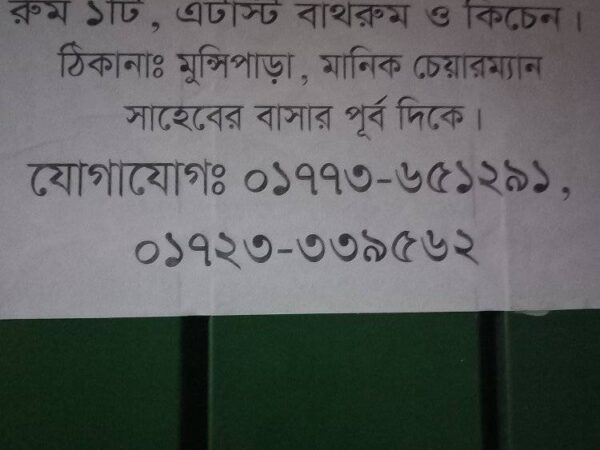 রুম ১টি, এটাস্ট বাথরুম ও কিচেন।
ঠিকানাঃ মুন্সিপাড়া, মানিক চেয়ারম্যান
সাহেবের বাসার পূর্ব দিকে।
যোগাযোগঃ ০১৭৭৩-৬৫১২৯১,
০১৭২৩-৩৩৯৫৬২